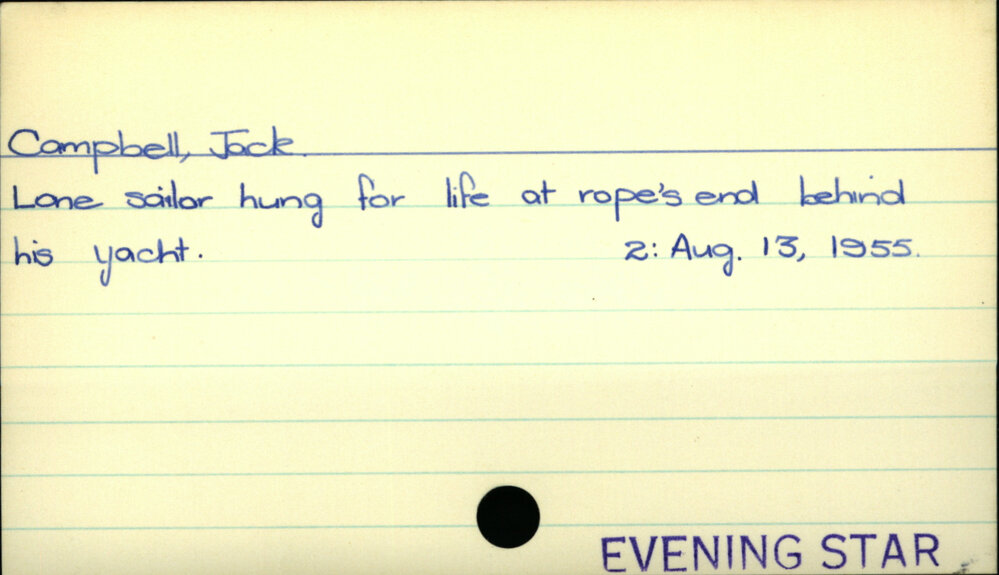 Campbell, Jack.
Lone sailor hung for life at rope's end behind
his yacht. 2: Aug. 13, 1955.
EVENING STAR